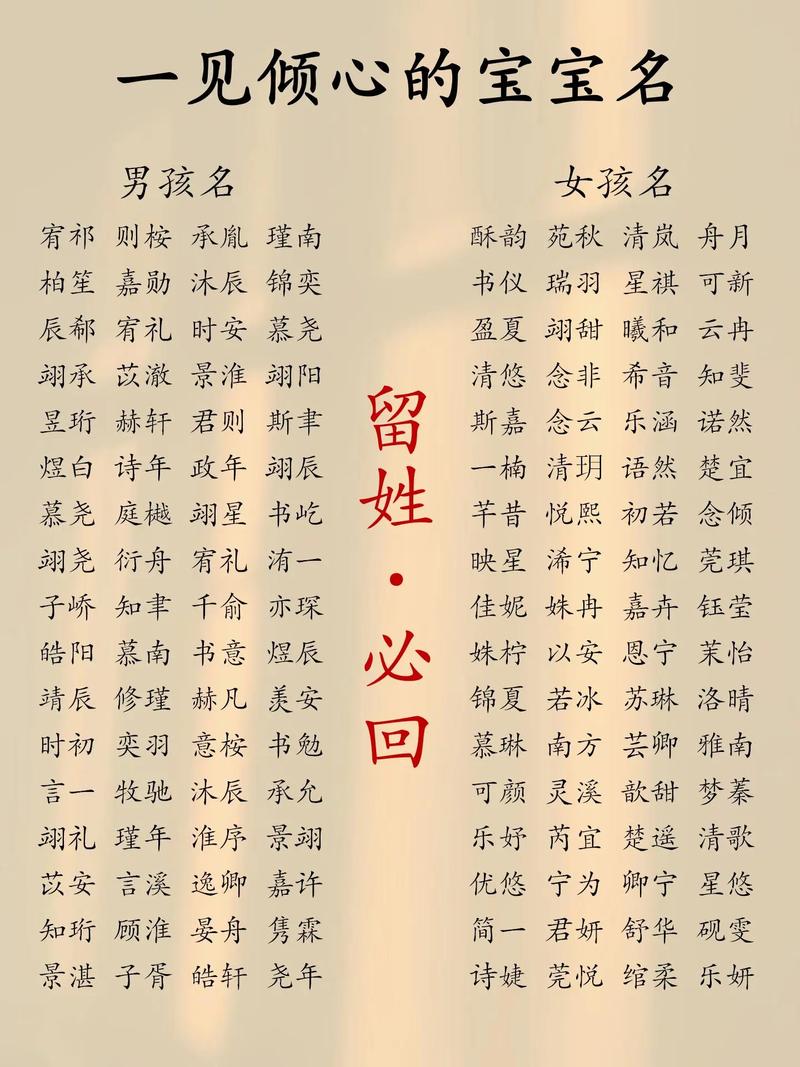 一见倾心的宝宝名
男孩名
宥祁 则桉 承胤 瑾南
柏笙 嘉勋 沐辰 锦奕
辰郗 宥礼 时安 慕尧
翊承 苡澈 景淮 翊阳
昱珩 赫轩 君则 斯聿
煜白 诗年 政年 翊辰
慕尧 庭樾 翊星 书屹
翊尧 衍舟 宥礼 洧一
子峤 知聿 千俞 亦琛
皓阳 慕南 书意 煜辰
靖辰 修瑾 赫凡 羡安
时初 奕羽 意桉 书勉
言一 牧驰 沐辰 承允
翊礼 瑾年 淮序 景翊
苡安 言溪 逸卿 嘉许
知珩 顾淮 晏舟 隽霖
景湛 子胥 皓轩 尧年
留姓·必回
女孩名
酥韵 苑秋 清岚 舟月
书仪 瑞羽 星祺 可新
盈夏 翊甜 曦和 云冉
清悠 念非 希音 知斐
斯嘉 念云 乐涵 诺然
一楠 清玥 语然 楚宜
芊昔 悦熙 初若 念倾
映星 浠宁 知忆 莞琪
佳妮 姝冉 嘉卉 钰莹
姝柠 以安 恩宁 茉怡
锦夏 若冰 苏琳 洛晴
慕琳 南方 芸卿 雅南
可颜 灵溪 歆甜 梦蓁
乐妤 芮宜 楚遥 清歌
优悠 宁为 卿宁 星悠
简一 君妍 舒华 砚雯
诗婕 莞悦 绾柔 乐妍